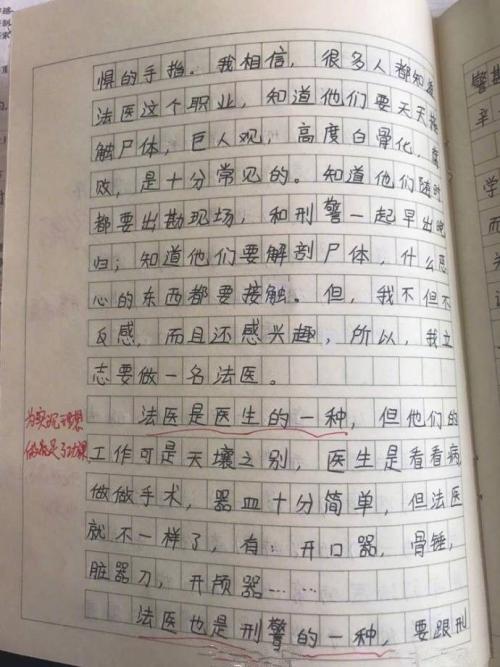 惧的手指。我相信，很多人都知道
法医这个职业，知道他们要天天接
触尸体，巨人观，高度白骨化，腐
败，是十分常见的。知道他们随时
都要出勘现场，和刑警一起早出晚
归；知道他们要解剖尸体，什么恶
心的东西都要接触。但，我不但不
反感，而且还感兴趣，所以，我立
志要做一名法医。
法医是医生的一种，但他们的
工作可是天壤之别，医生是看看病，
做做手术，器皿十分简单，但法医
就不一样了，有：开口器，骨锤，
脏器刀，开颅器……
法医也是刑警的一种，要跟刑
为实现理想
做足了功课
警勘
辛
学
而